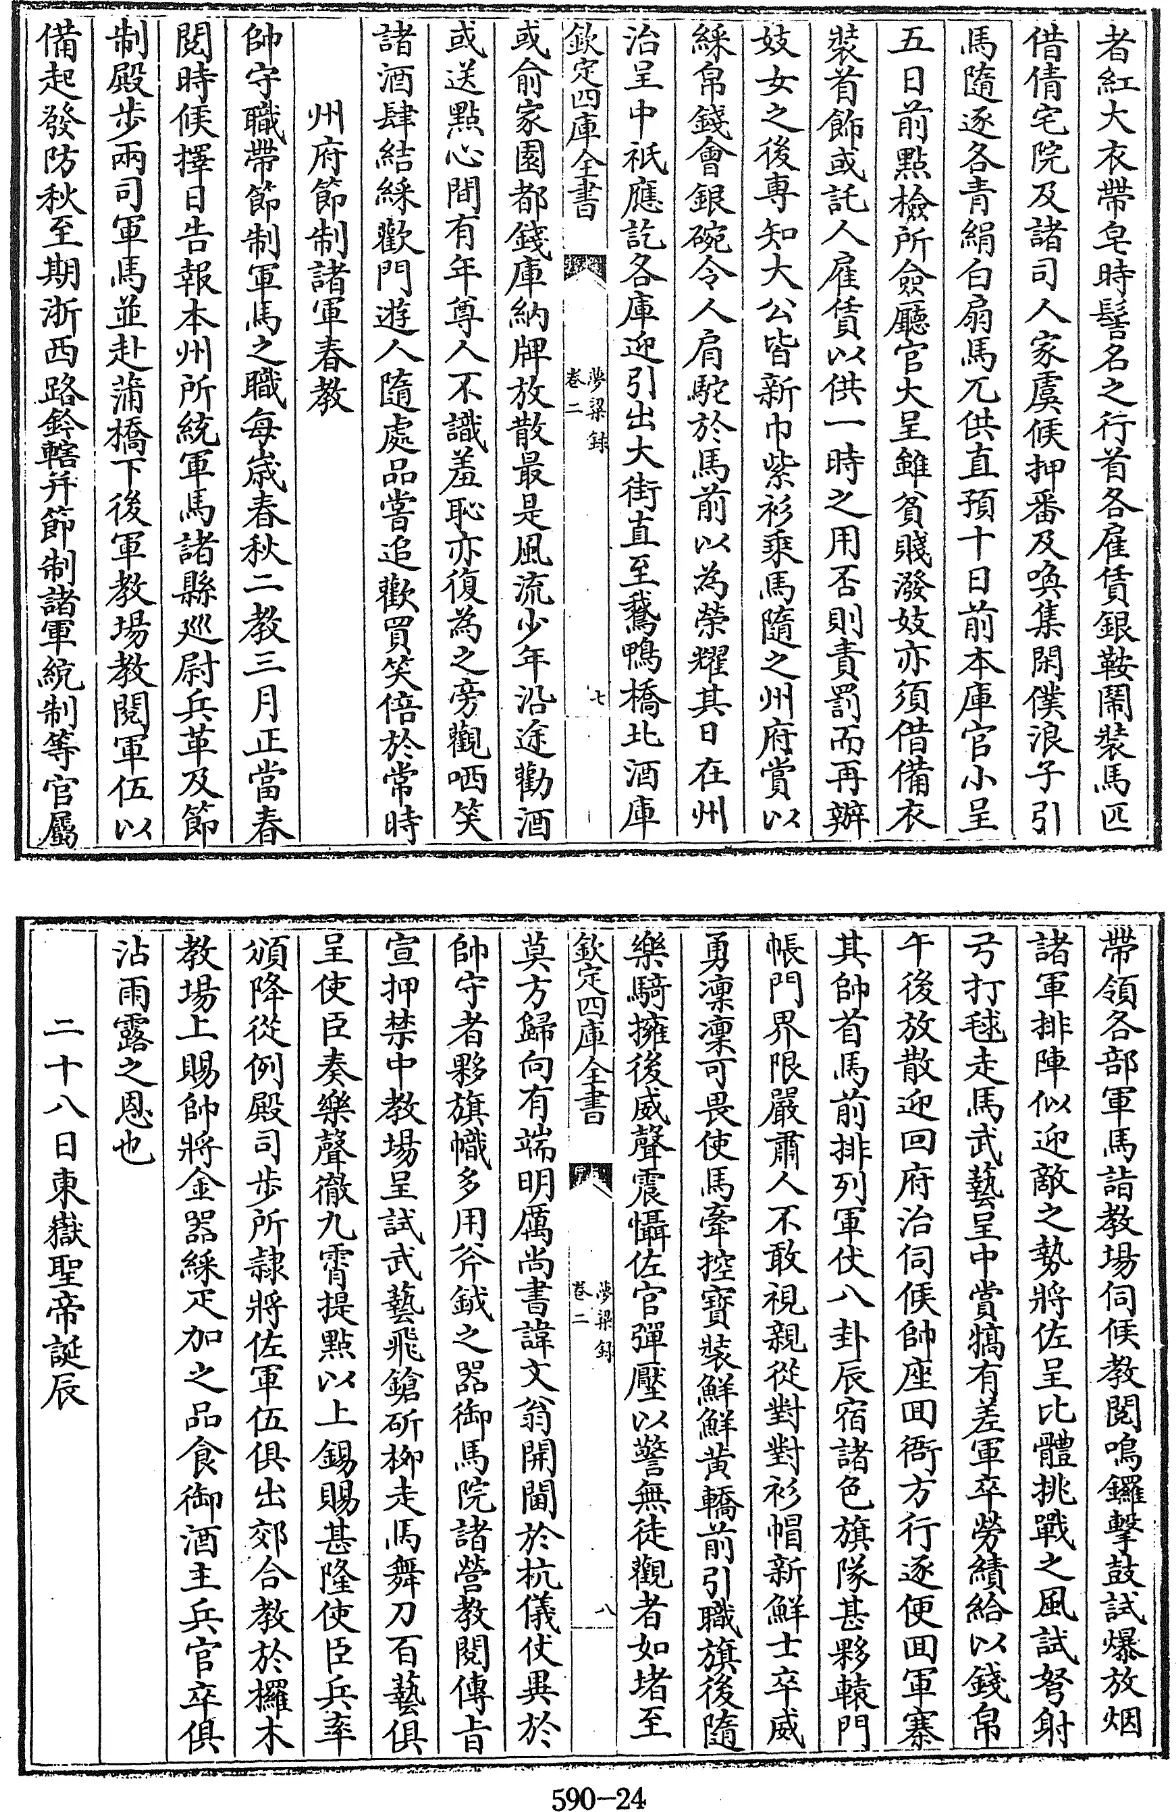 者紅大衣帶皂時髻名之行首各雇賃銀鞍鬧裝馬匹
借倩宅院及諸司人家虞候押番及喚集閑僕浪子引
馬隨逐各青絹白扇馬兀供直預十日前本庫官小呈
五日前點檢所僉廳官大呈雖貧賤潑妓亦須借備衣
裝首飾或託人雇賃以供一時之用否則責罰而再辦
妓女之後専知大公皆新巾紫衫乘馬隨之州府賞以
綵帛錢會銀碗令人肩駝於馬前以為榮耀其日在州
治呈中祇應訖各庫迎引出大街直至鵞鴨橋北酒庫
欽定四庫全書
夢粱録
卷二
七
或俞家園都錢庫納牌放散最是風流少年沿途勸酒
或送點心間有年尊人不識羞恥亦復為之旁觀哂笑
諸酒肆結綵歡門遊人隨處品嘗追歡買笑倍於常時
州府節制諸軍春教
帥守職帶節制軍馬之職每歳春秋二教三月正當春
閱時候擇日告報本州所統軍馬諸縣廵尉兵革及節
制殿步兩司軍馬並赴蒲橋下後軍教場教閱軍伍以
備起發防秋至期浙西路鈐轄并節制諸軍統制等官屬
帶領各部軍馬詣教場伺候教閱鳴鑼擊鼓試爆放烟
諸軍排陣似迎敵之勢將佐呈比體挑戰之風試弩射
弓打毬走馬武藝呈中賞犒有差軍卒勞績給以錢帛
午後放散迎回府治伺候帥座囬衙方行逐便囬軍寨
其帥首馬前排列軍仗八卦辰宿諸色旗隊甚夥轅門
帳門界限嚴肅人不敢視親從對對衫帽新鮮士卒威
勇凜凜可畏使馬牽控寶裝鮮鮮黄轎前引職旗後隨
樂騎擁後威聲震懾佐官彈壓以警無徒觀者如堵至
欽定四庫全書
夢粱録
卷二
八
莫方歸向有端明厲尚書諱文翁開閫於杭儀仗異於
帥守者夥旗幟多用斧鉞之器御馬院諸營教閱傳㫖
宣押禁中教場呈試武藝飛鎗斫栁走馬舞刀百藝俱
呈使臣奏樂聲徹九霄提點以上錫賜甚隆使臣兵率
頒降從例殿司步所隷將佐軍伍俱出郊合教於欏木
教場上賜帥將金器綵疋加之品食御酒主兵官卒俱
沾雨露之恩也
二十八日東嶽聖帝誕辰
590-24